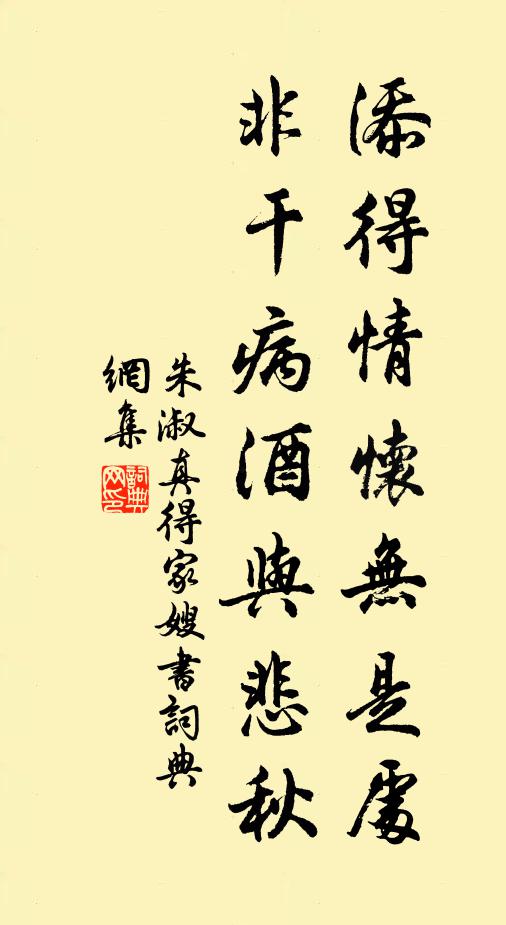 添得情懷無是處
非干病酒與悲秋
朱淑真得家嫂書詞典
網集
詞典網印